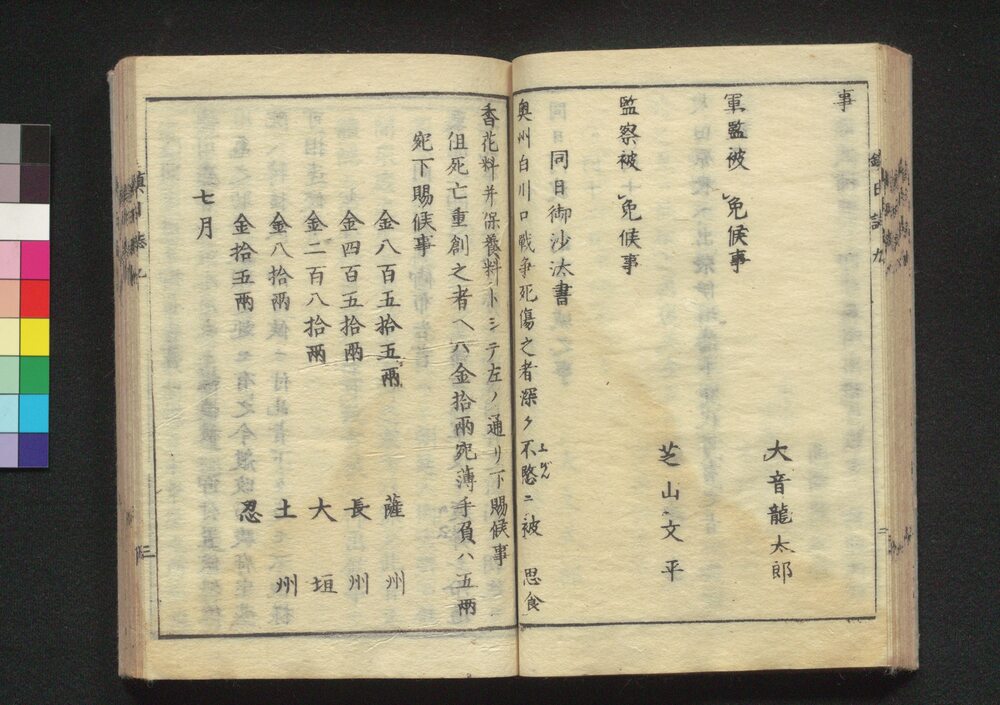 事
大音龍太郎
軍監被　免候事
芝山文平
監察被　免候事
同日御沙汰書
奥州白川口戦争死傷之者深ク不愍ニ被　思食
ふびん
香花料并保養料トシテ左ノ通リ下賜候事
但死亡重創之者ヘハ金拾兩宛薄手負ハ五兩
宛下賜候事
金八百五拾五兩　薩州
金四百五拾兩　長州
金二百八拾兩　大垣
金八拾兩　土州
金拾五兩　忍
七月
鎮日誌九
三